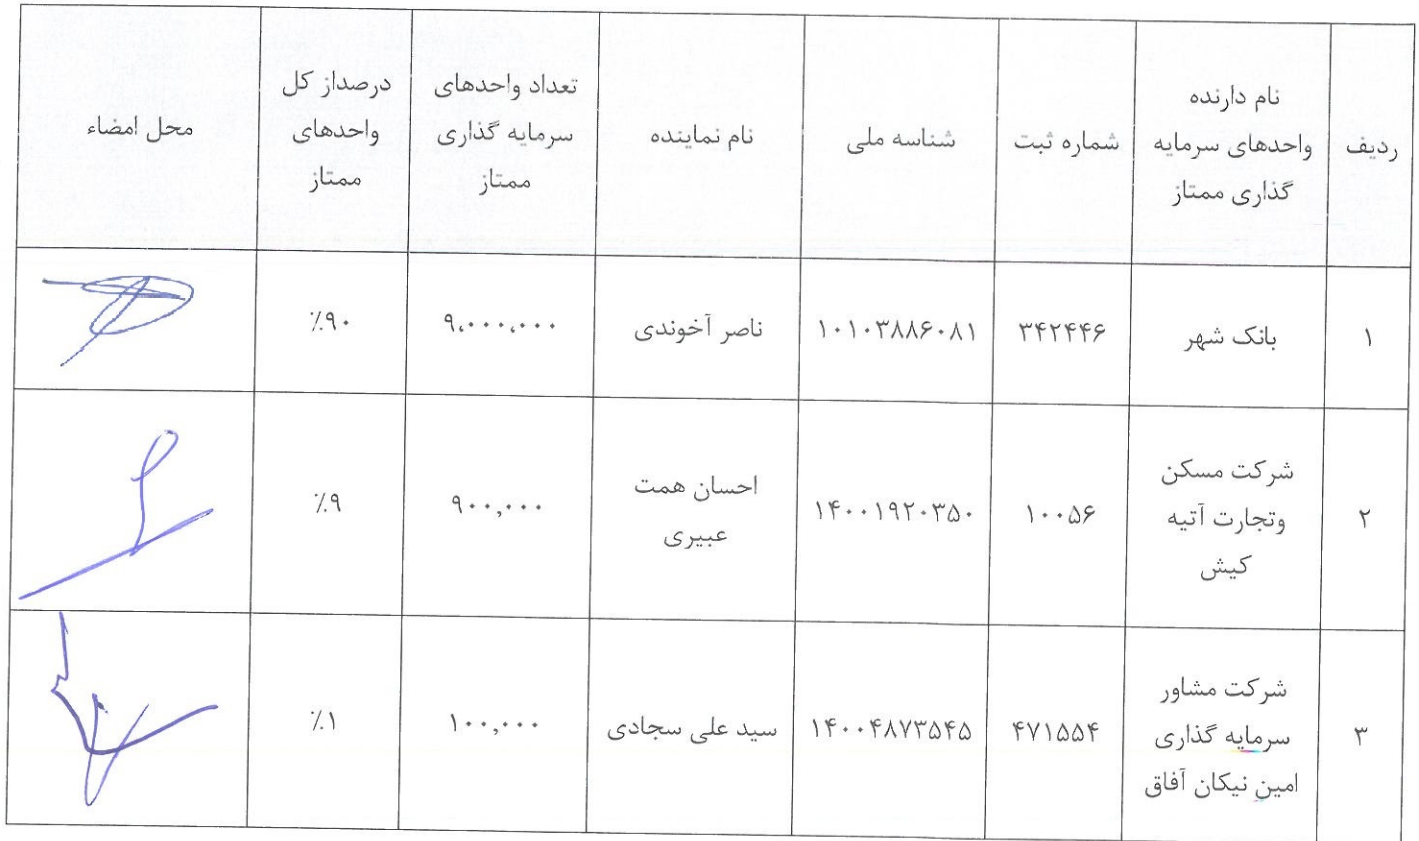 ردیف
نام دارنده
واحدهای سرمایه
گذاری ممتاز
شماره ثبت
شناسه ملی
نام نماینده
تعداد واحدهای
سرمایه گذاری
ممتاز
درصداز کل
واحدهای
ممتاز
محل امضاء
۱
بانک شهر
۳۴۲۴۴۶
۱۰۱۰۳۸۸۶۰۸۱
ناصر آخوندی
۹،۰۰۰،۰۰۰
٪۹۰
۲
شرکت مسکن
وتجارت آتیه
کیش
۱۰۰۵۶
۱۴۰۰۱۹۲۰۳۵۰
احسان همت
عبیری
۹۰۰,۰۰۰
٪۹
۳
شرکت مشاور
سرمایه گذاری
امین نیکان آفاق
۴۷۱۵۵۴
۱۴۰۰۴۸۷۳۵۴۵
سید علی سجادی
۱۰۰,۰۰۰
٪۱